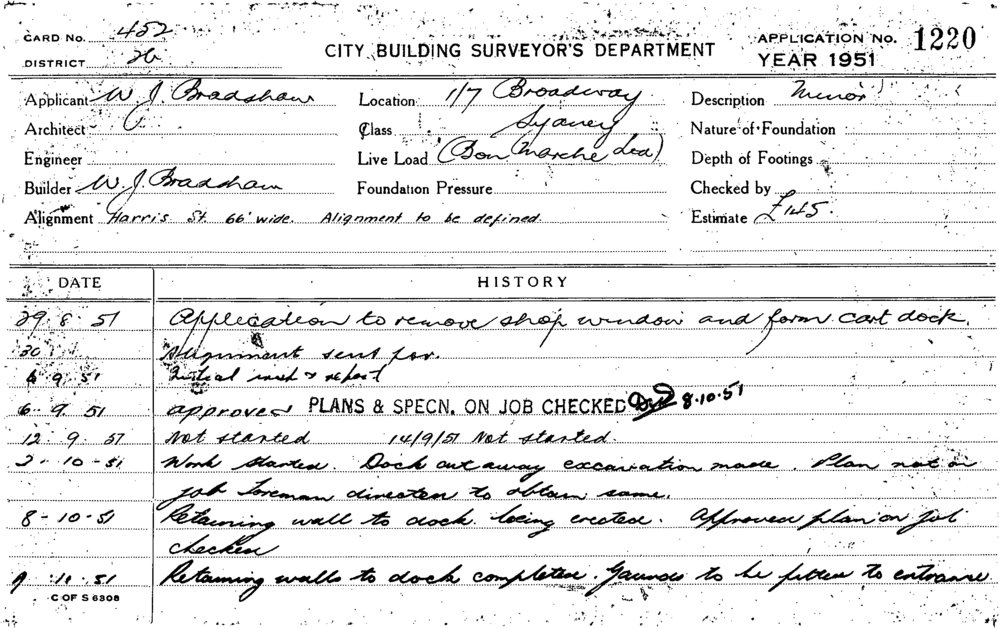 CARD No. 452
DISTRICT 26
CITY BUILDING SURVEYOR'S DEPARTMENT
APPLICATION No. 1220
YEAR 1951
Applicant W. J. Bradshaw
Location 1/7 Broadway
Description Minor
Architect
Class Sydney
Nature of Foundation
Engineer
Live Load (Bon Marche Ltd)
Depth of Footings
Builder W. J. Bradshaw
Foundation Pressure
Checked by
Alignment Harris St. 66' wide. Alignment to be defined.
Estimate £145.
DATE HISTORY
29 8 51 Application to remove shop window and form cart dock.
30 Alignment sent for.
6 9 51 Initial insp & report
6 9 51 approved PLANS & SPECN. ON JOB CHECKED 8.10.51
12 9 51 Not started 14/9/51 Not started.
2-10-51 Work started. Dock cut away excavation made. Plan not on
job foreman directed to obtain same.
8-10-51 Retaining wall to dock being erected. Approved plan on job
checked
9 11 51 Retaining walls to dock completed. Guards to be fitted to entrance
C OF S 6308